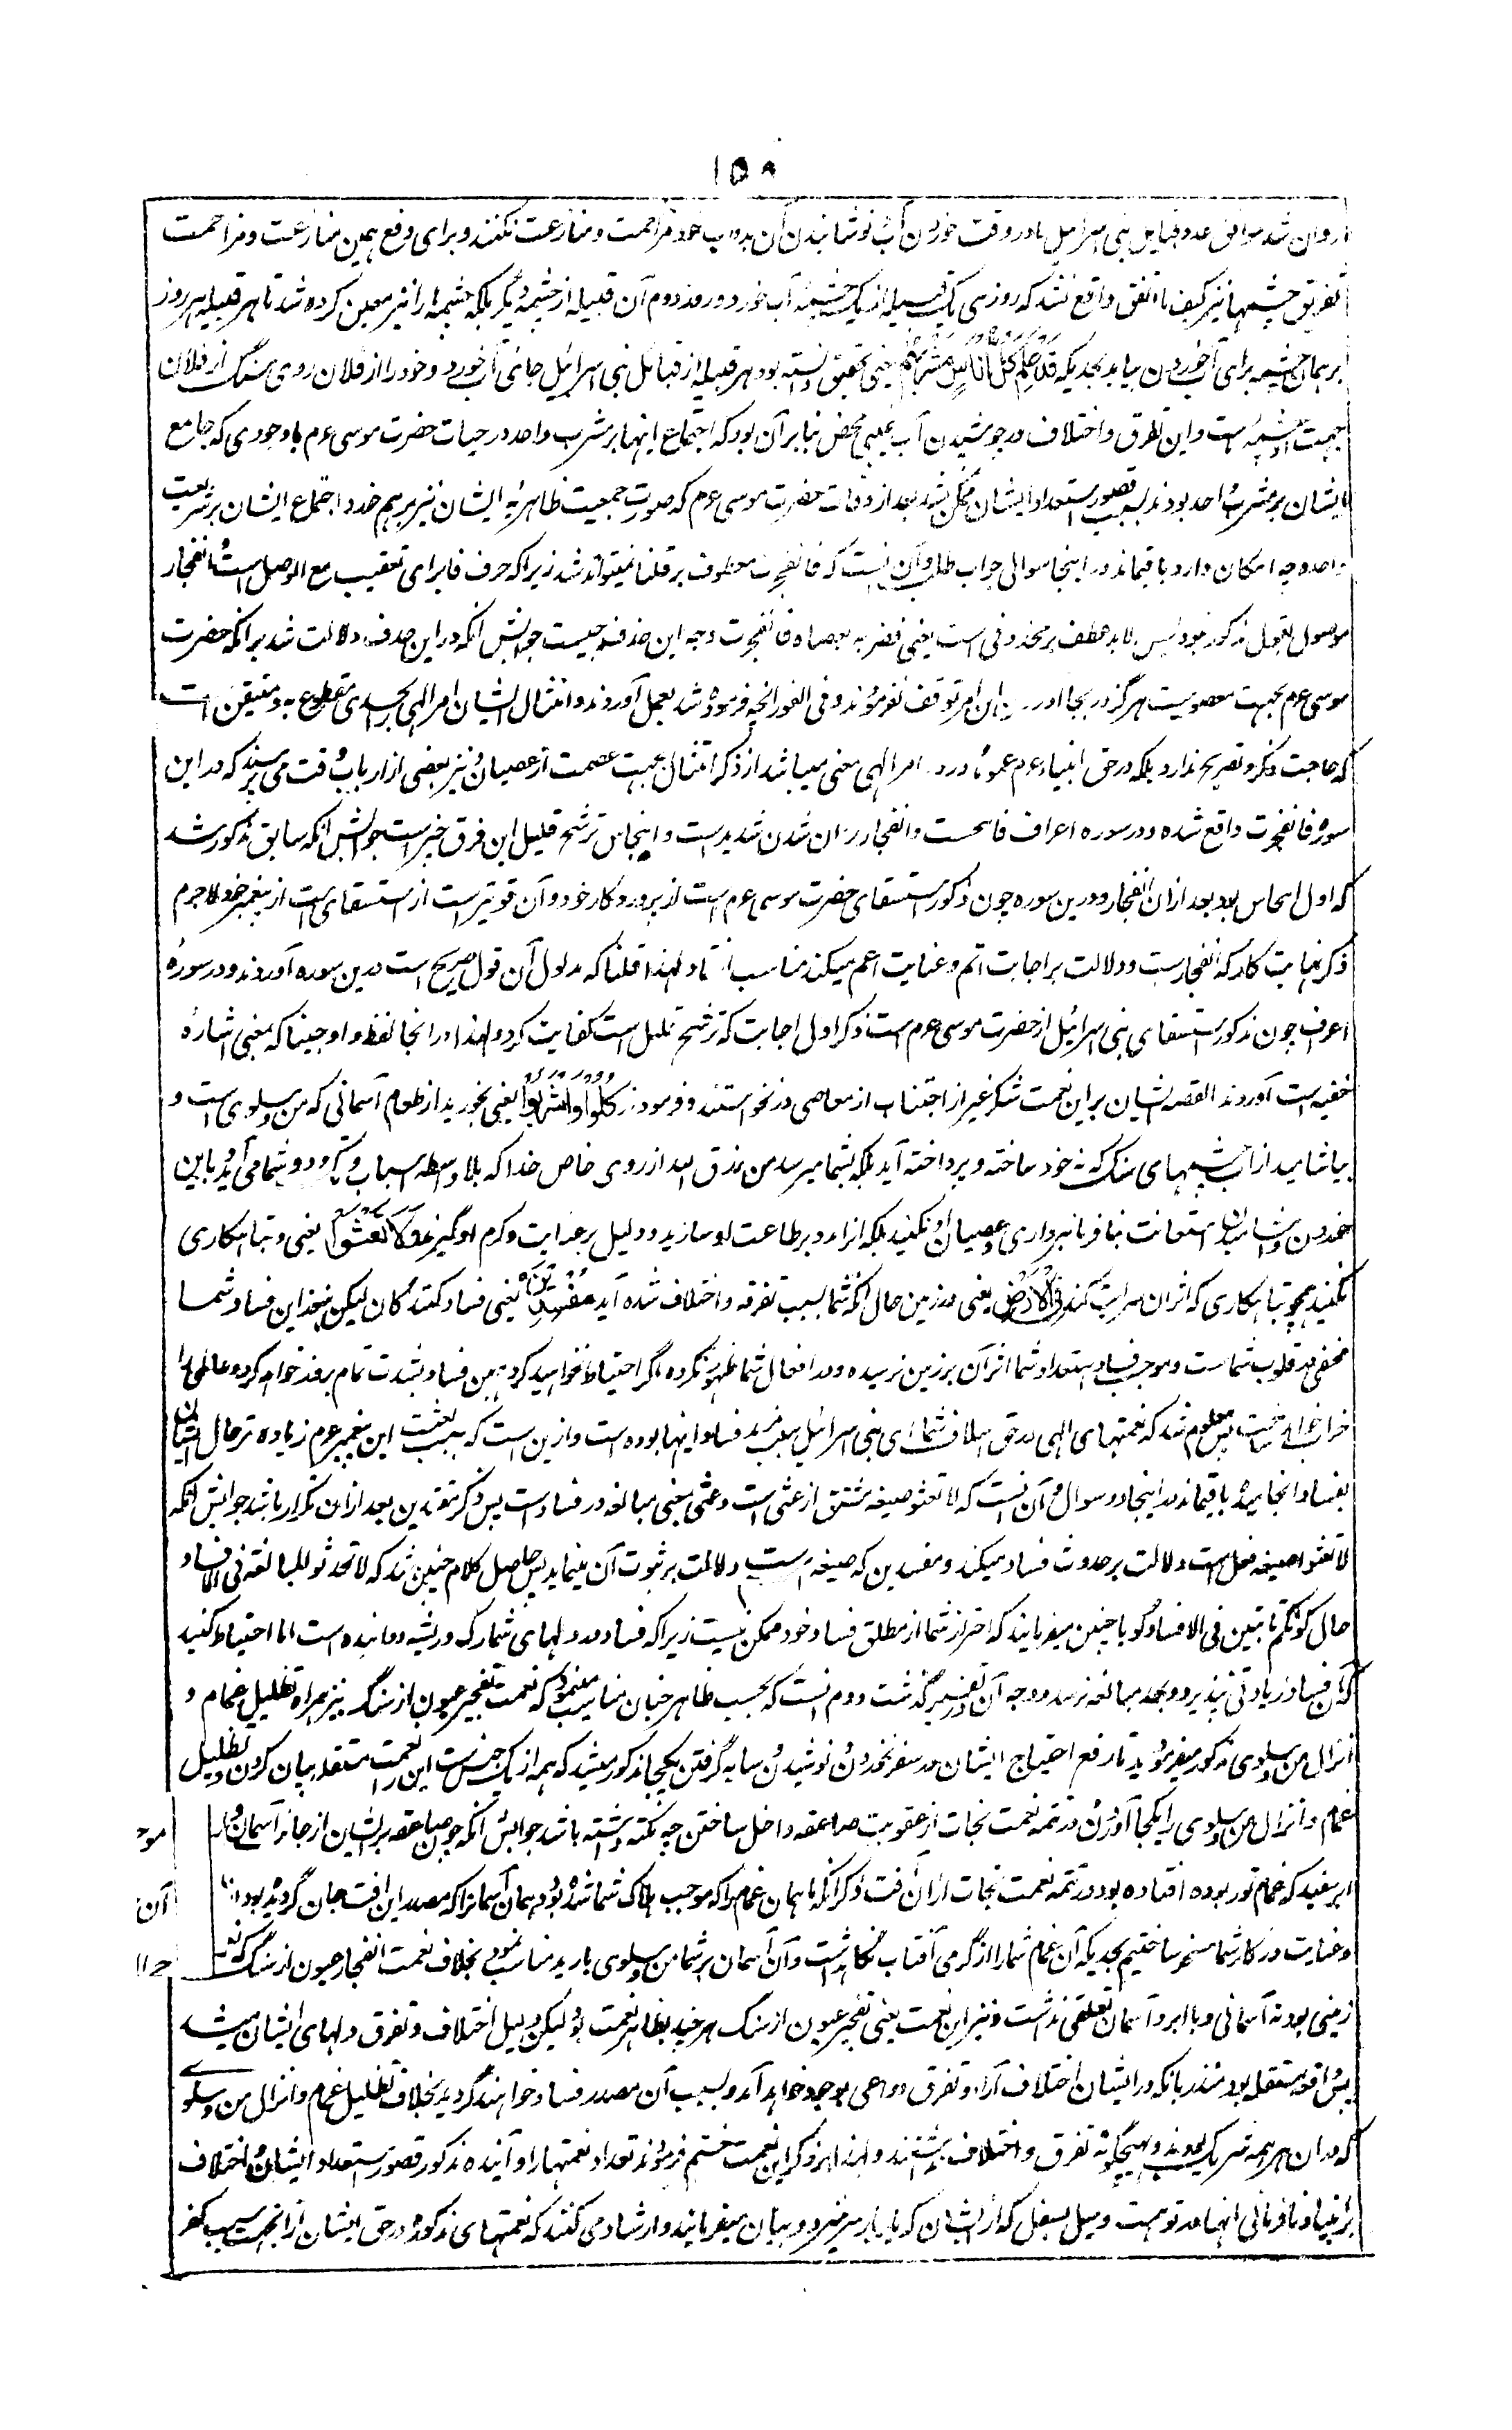 ۱۵۸
روان شد موافق عدد قبایل بنی اسرائیل تا در وقت خوردن آب و نوشانیدن آن بدواب خود مزاحمت و منازعت نکنند و برای رفع همین منازعت و مزاحمت
تفریق چشمها نیز کیف ما اتفق واقع نشد که روزی یک قبیله از یک چشمه آب خورد و روز دوم آن قبیله از چشمه دیگر بلکه چشمها را نیز معین کرده شد تا هر قبیله هر روز
بر همان چشمه برای آب خوردن بیاید بحدیکه قَدْ عَلِمَ كُلُّ أُنَاسٍ مَشْرَبَهُمْ یعنی تحقیق دانسته بود هر قبیله از قبائل بنی اسرائیل جای آب خورد و خود را از فلان روی سنگ از فلان
جهت و این تفرق و اختلاف در جوشیدن آب غیبی محض بنابر آن بود که اجتماع اینها بر مشرب واحد در حیات حضرت موسی عم با وجودی که جامع
ایشان بر مشرب واحد بودند بسبب قصور استعداد ایشان ممکن نشد بعد از وفات حضرت موسی عم که صورت جمعیت ظاهریه ایشان نیز برهم خورد اجتماع ایشان بر شریعت
واحده چه امکان دارد باقیماند در اینجا سوالی جواب طلب و آن اینست که فانفجرت معطوف بر قلنا نمیتواند شد زیرا که حرف فا برای تعقیب مع الوصل است و انفجار
موصول بقول مذکور نبود پس لابد عطف بر محذوفی است یعنی فضربه بعصاه فانفجرت وجه این حذف چیست جوابش آنکه در این حذف دلالت شد بر آنکه حضرت
موسی عم بجهت معصومیت هرگز در بجا آوردن این امر توقف نفرمودند و فی الفور آنچه فرموده شد بعمل آوردند و امتثال ایشان امر الهی را بحدی مقطوع به و متیقن است
که حاجت ذکر و تصریح ندارد بلکه در حق انبیاء عم عموما ورود امر الهی مغنی میباشد از ذکر امتثال بجهت عصمت از عصیان و نیز بعضی از ارباب وقت می پرسند که در این
سوره فانفجرت واقع شده و در سوره اعراف فانبجست و انفجار روان شدن شدید است و انبجاس ترشح قلیل این فرق چیست جوابش آنکه سابق مذکور شد
که اول انبجاس بود بعد از ان انفجار و درین سوره چون مذکور استسقای حضرت موسی عم است از پروردگار خود و آن قویتر است از استسقای امت از پیغمبر خود لاجرم
ذکر نهایت کار که انفجار است و دلالت بر اجابت اتم و عنایت اعم میکند مناسب افتاد لهذا قلنا که مدلول آن قول صریح است درین سوره آوردند و در سوره
اعراف چون مذکور استسقای بنی اسرائیل از حضرت موسی عم است ذکر اول اجابت که ترشح قلیل است کفایت کرد و لهذا در انجا لفظ و اوحینا که بمعنی اشاره
خفیه است آوردند القصه ایشان بر این نعمت شکر غیر از اجتناب از معاصی درنخواستند و فرمودند كُلُوا وَاشْرَبُوا یعنی بخورید از طعام آسمانی که من و سلوی است و
بیاشامید از آب چشمهای سنگ که نه خود ساخته و پرداخته آید بلکه بشما میرسد من رزق الله از روی خاص خدا که بلا واسطه اسباب و کد و شما می آید و باین
خوردن و آشامیدن استعانت بنا فرمانبرداری و عصیان او نکنید بلکه آنرا مدد بر طاعت او سازید و دلیل بر عنایت و کرم او گیرید وَلَا تَعْثَوْا یعنی و تباهکاری
نکنید همچو تباهکاری که اثر آن سرایت کند فِي الْأَرْضِ یعنی در زمین حال آنکه شما بسبب تفرقه و اختلاف شده آید مُفْسِدِينَ یعنی فساد کنندگان لیکن هنوز این فساد شما
مخفی در قلوب شماست و موجب فساد استعداد شما اثر آن بر زمین نرسیده و در افعال شما ظهور نکرده اگر احتیاط نخواهید کرد همین فساد بشدت تمام بروز خواهد کرد و عالمی را
خراب خواهد ساخت پس معلوم شد که نعمتهای الهی در حق اسلاف شما ای بنی اسرائیل سبب مزید فساد اینها بوده است و ازین است که بسبب بعثت این پیغمبر عم زیاده تر حال ایشان
بفساد انجامیده باقیماند در اینجا دو سوال اول آن اینست که لا تعثوا صیغه مشتق از عثی است و عثی بمعنی مبالغه در فساد است پس ذکر مفسدین بعد از ان تکرار باشد جوابش آنکه
لا تعثوا صیغه فعل است دلالت بر حدوث فساد میکند و مفسدین که صیغه اسم است دلالت بر ثبوت آن مینماید پس حاصل کلام چنین شد که لا تحدثوا المبالغة فی الافساد
حال کونکم ثابتین فی الافساد گویا چنین میفرمایند که احتراز شما از مطلق فساد خود ممکن نیست زیرا که فساد در دلهای شما رگ و ریشه دوانیده است اما احتیاط کنید
که آن فساد زیادتی نپذیرد و بحد مبالغه نرسد و وجه آن در تفسیر گذشت دوم آنست که بحسب ظاهر چنان مناسب مینمود که نعمت تفجیر عیون از سنگ نیز همراه تظلیل غمام و
انزال من و سلوی مذکور میفرمودند تا رفع احتیاج ایشان در سفر بخوردن و نوشیدن و سایه گرفتن یکجا مذکور میشد که همه از یک جنس است این را نعمت مستقله بیان کردن و تظلیل
غمام و انزال من و سلوی را یکجا آوردن در تتمه نعمت نجات از عقوبت صاعقه داخل ساختن چه نکته داشته باشد جوابش آنکه چون صاعقه بر ایشان از جانب آسمان و از
ابر سفید که غمام نور بوده افتاده بود در تتمه نعمت نجات از ان آفت ذکر کردند ما همان غمام را که موجب هلاک شما شده بود و همان آسمان را که مصدر این آفت جان گردیده بود
و عنایت در کار شما مسخر ساختیم بحدیکه آن غمام شما را از گرمی آفتاب نگاه داشت و آن آسمان بر شما من و سلوی بارید مناسب نمود بخلاف نعمت انفجار عیون از سنگ که
زمینی بود نه آسمانی و با ابر و آسمان تعلقی نداشت و نیز این نعمت یعنی تفجیر عیون از سنگ هر چند بظاهر نعمت بود لیکن دلیل اختلاف و تفرق دلهای ایشان میشد
پس واقعه مستقله بود منذر بانکه در ایشان اختلاف آراء و تفرق دواعی بوجود خواهد آمد و بسبب آن مصدر فساد خواهند گردید بخلاف تظلیل غمام و انزال من و سلوی
که در ان هر همه شریک بودند و هیچگونه تفرق و اختلاف نداشتند و لهذا بر ذکر این نعمت ختم فرمودند تعداد نعمتها را و آینده مذکور قصور استعداد ایشان و اختلاف
بر انبیاء و نافرمانی اینها در توهمت و میل بسفل که از ایشان که بار بار سر میزد و بیان میفرمایند و ارشاد می کنند که نعمتهای مذکوره در حق ایشان از انجهت سبب کفر